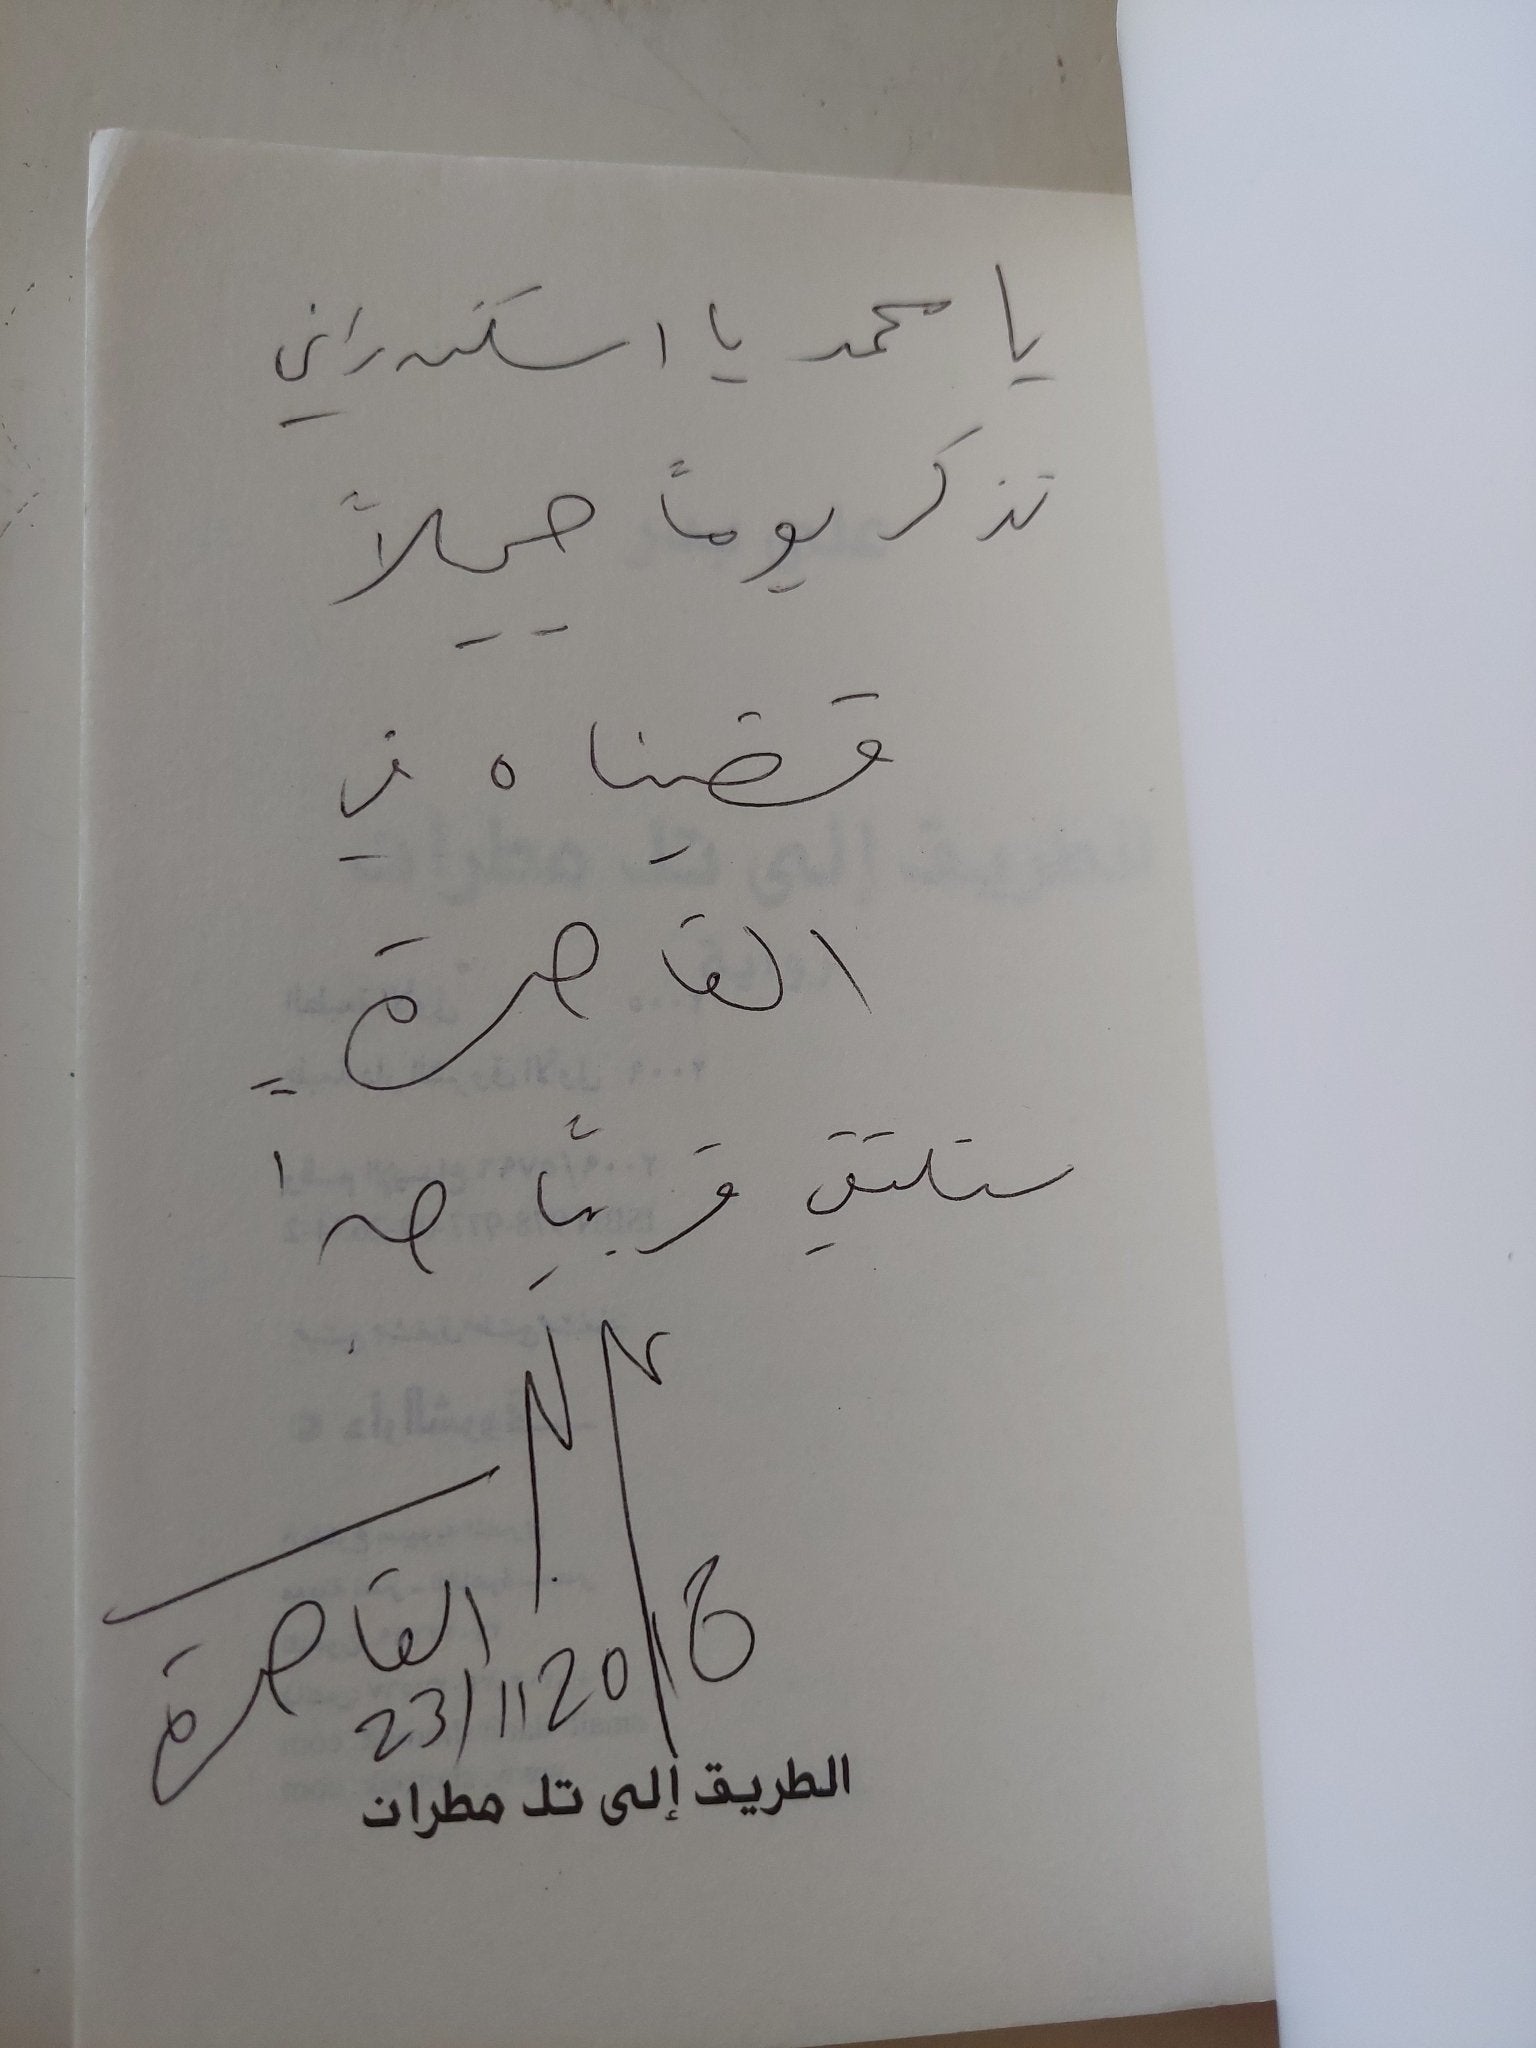 يا محمد يا اسكندراني
تذكر يوماً جميلاً
قضيناه في
القاهرة
سنلتقي قريباً جداً
القاهرة
23/11 2016
الطريق إلى تل مطران